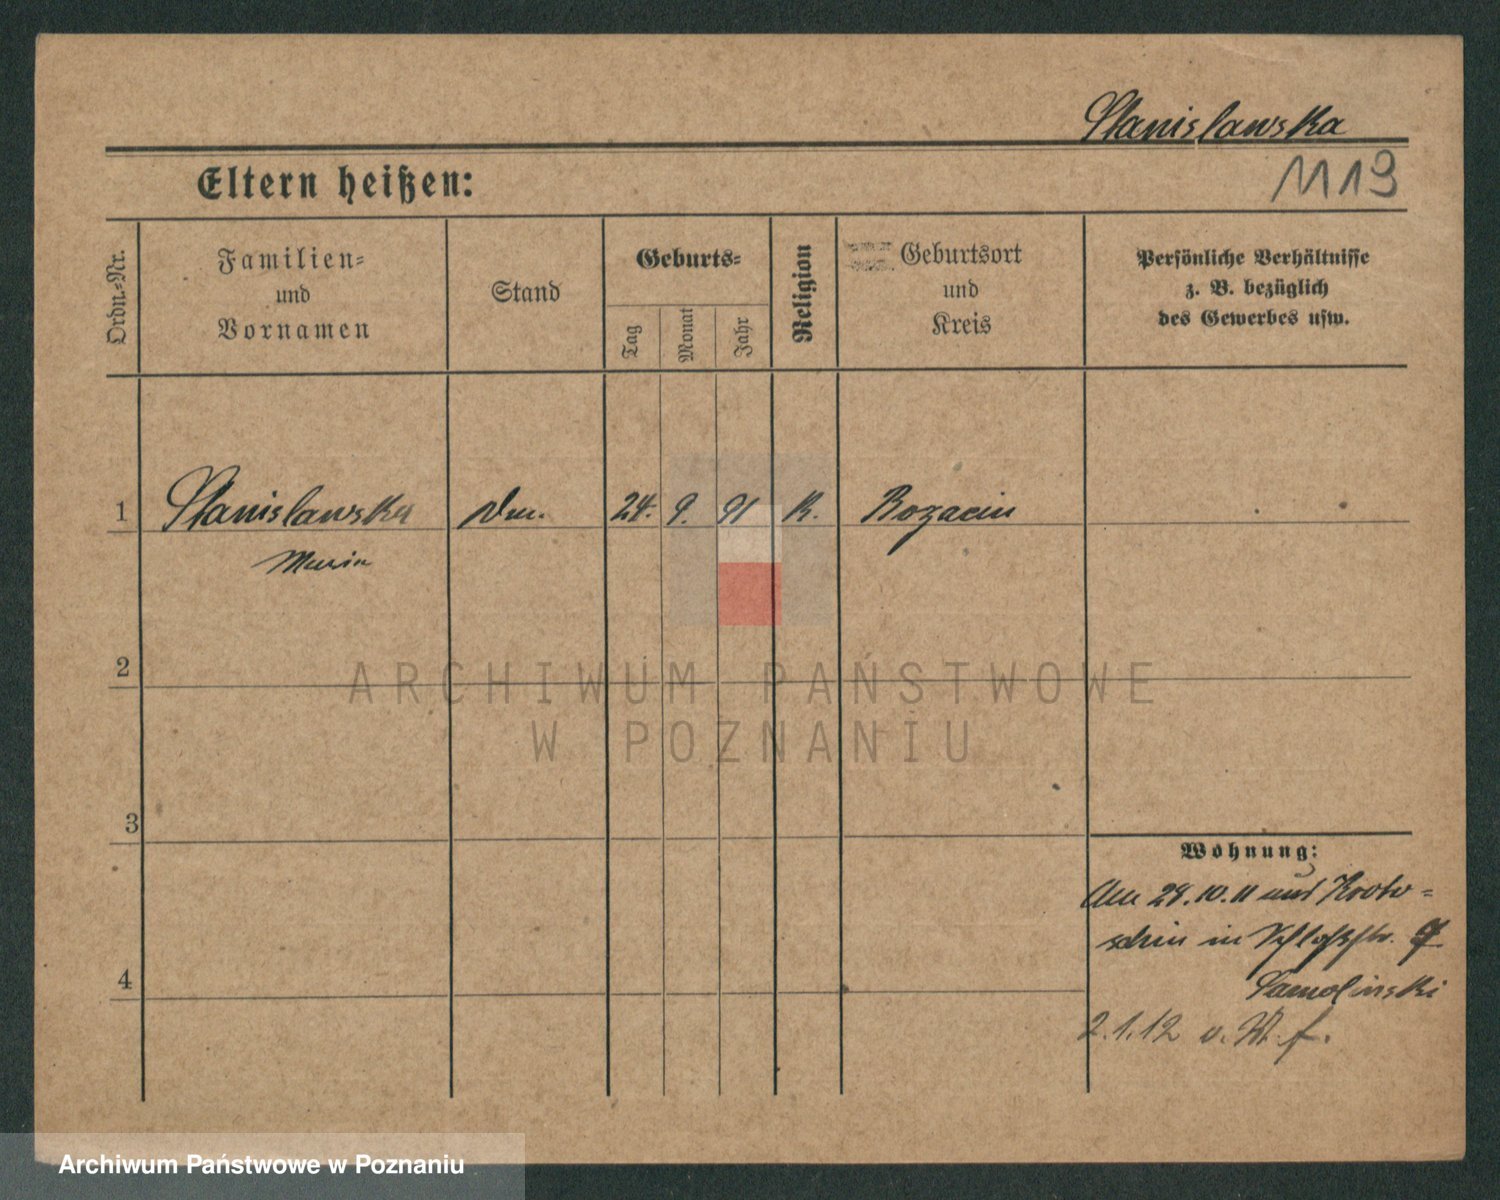 Stanislawska
1119
Eltern heißen:
Ordn.-Nr.
Familien-
und
Vornamen
Stand
Geburts-
Tag
Monat
Jahr
Religion
Geburtsort
und
Kreis
Persönliche Verhältnisse
z. B. bezüglich
des Gewerbes usw.
1 Stanislawska 24. 9. 91 K. Bozacin
Maria
2
3
4
Wohnung:
Am 28.10.11 Kroto-
schin in Schloßstr. 7
Samolinski
2.1.12 v.
ARCHIWUM PAŃSTWOWE
W POZNANIU
Archiwum Państwowe w Poznaniu